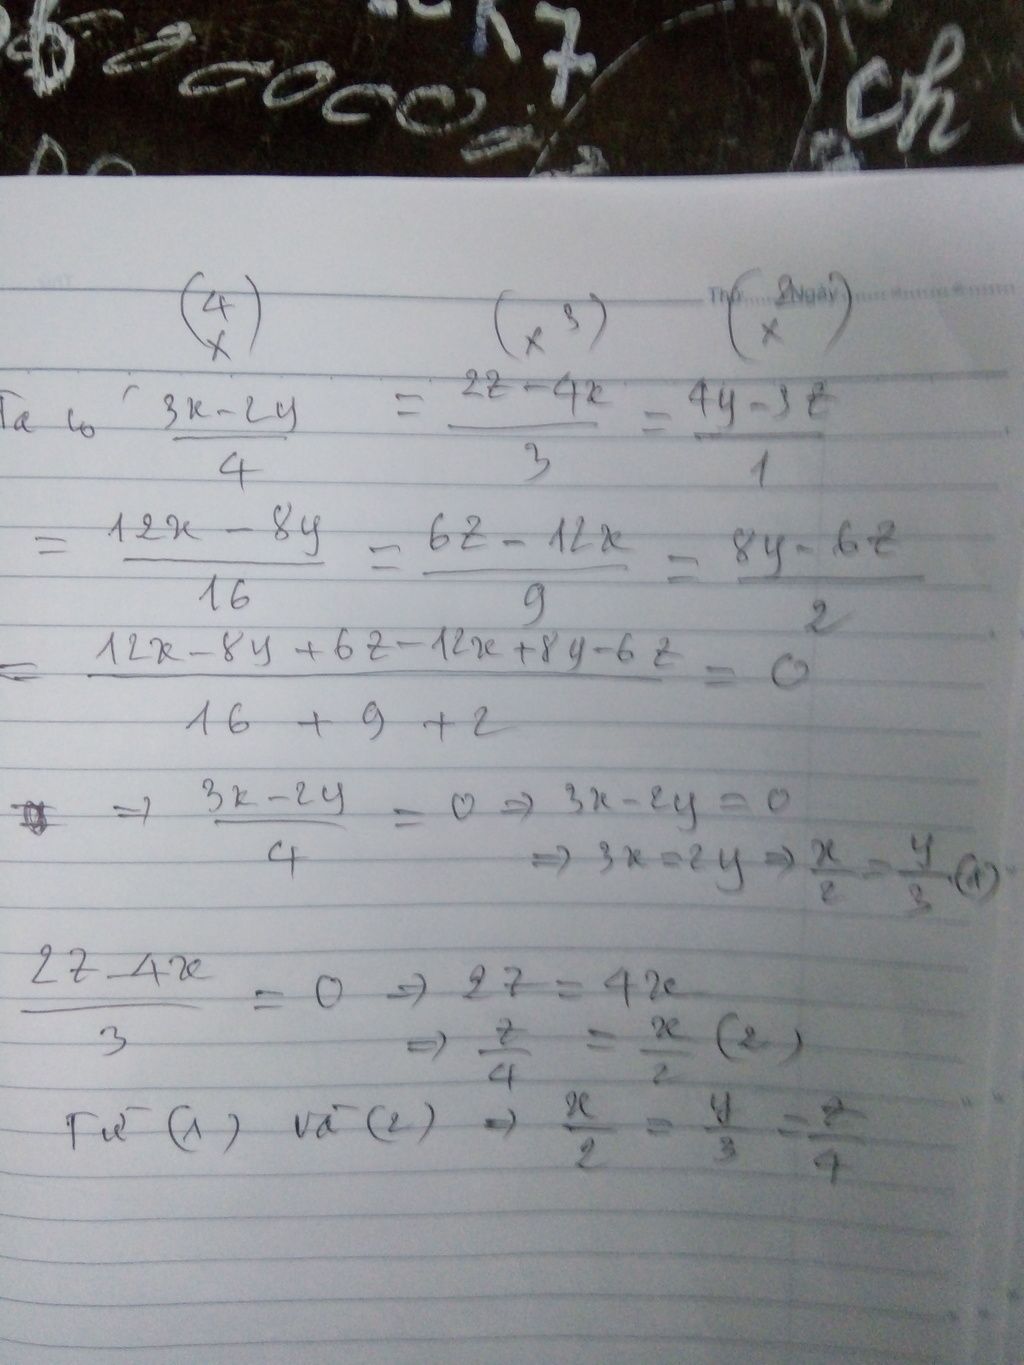 7
ch
Thứ Ngày
(4 x) (x 3) (x 2)
Ta có (3x-2y)/4 = (2z-4x)/3 = (4y-3z)/1
= (12x-8y)/16 = (6z-12x)/9 = (8y-6z)/2
= (12x-8y+6z-12x+8y-6z)/(16+9+2) = 0
⇒ (3x-2y)/4 = 0 ⇒ 3x-2y=0
⇒ 3x=2y ⇒ x/2 = y/3 (1)
(2z-4x)/3 = 0 ⇒ 2z = 4x
⇒ z/4 = x/2 (2)
Từ (1) và (2) ⇒ x/2 = y/3 = z/4